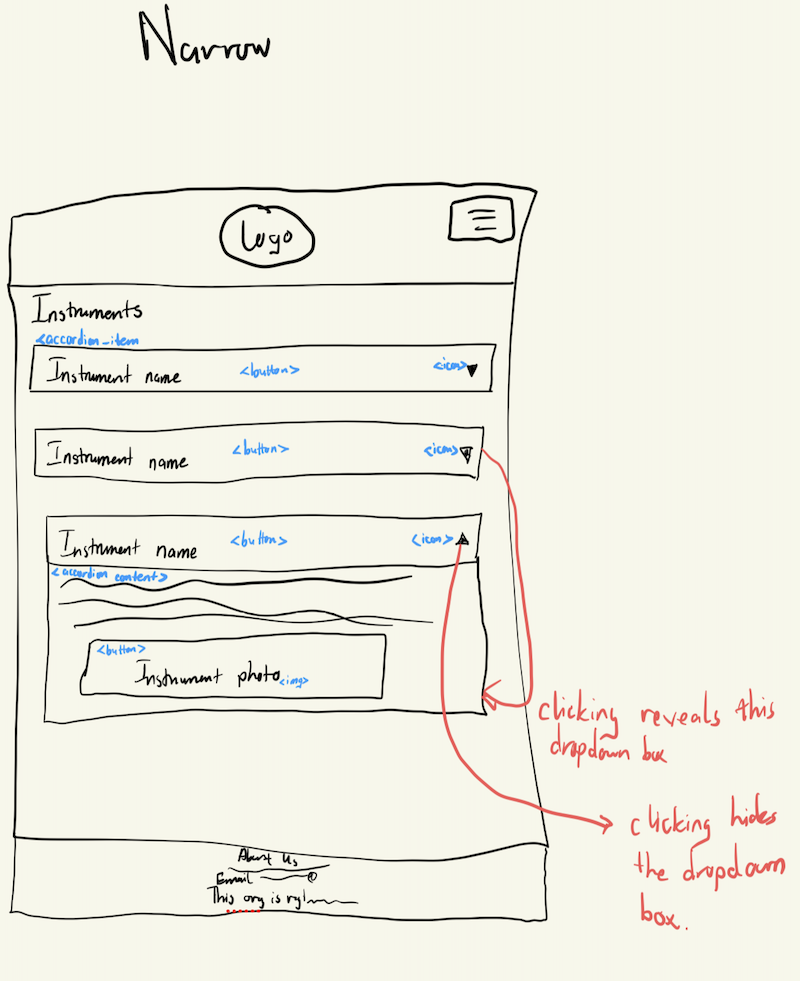 Narrow
Logo
Instruments
<accordion_item
Instrument name <button> <icon>
Instrument name <button> <icon>
Instrument name <button> <icon>
<accordion content>
<button>
Instrument photo <img>
clicking reveals this
dropdown box
clicking hides
the dropdown
box.
About Us
Email
This org is